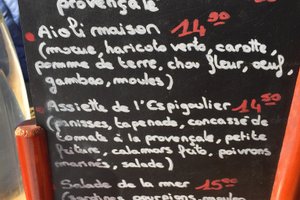 provençale
Aioli maison 14.90
(morue, haricots verts, carotte,
pomme de terre, chou fleur, oeuf,
gambas, moules)
Assiette de l'Espigoulier 14.50
(panisses, tapenade, concassé de
tomate à la provençale, petite
friture, calamars frits, poivrons
marinés, salade)
Salade de la mer 15.50
(sardines, pourpions, moules